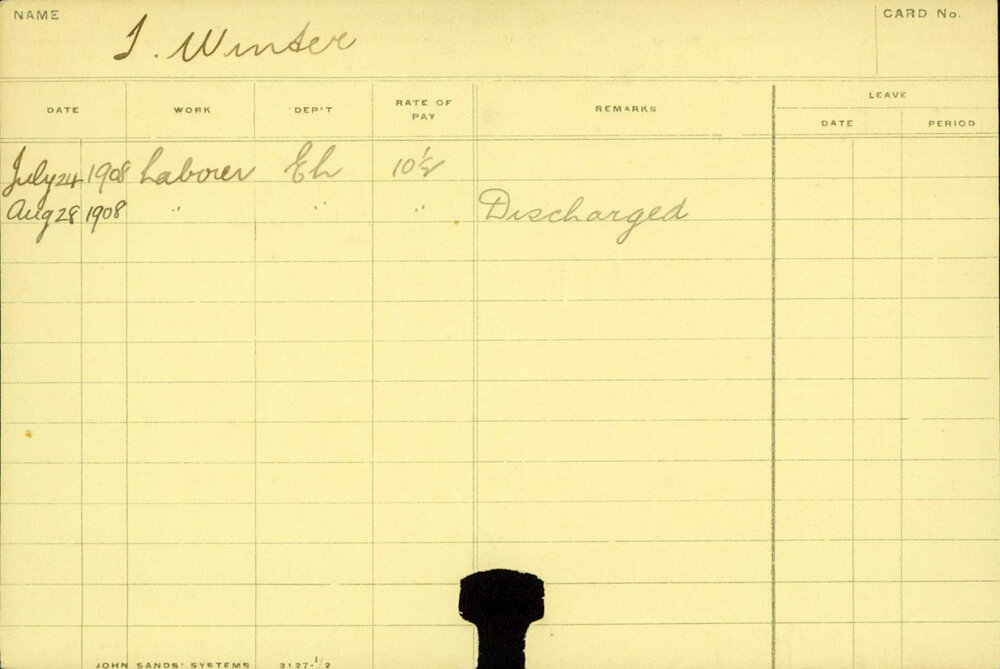 NAME
J. Winter
CARD No.
DATE WORK DEP'T RATE OF PAY REMARKS LEAVE
DATE PERIOD
July 24 1908 Laborer Eh 10½
Aug 28 1908 " " " Discharged
JOHN SANDS' SYSTEMS 3127-1/2